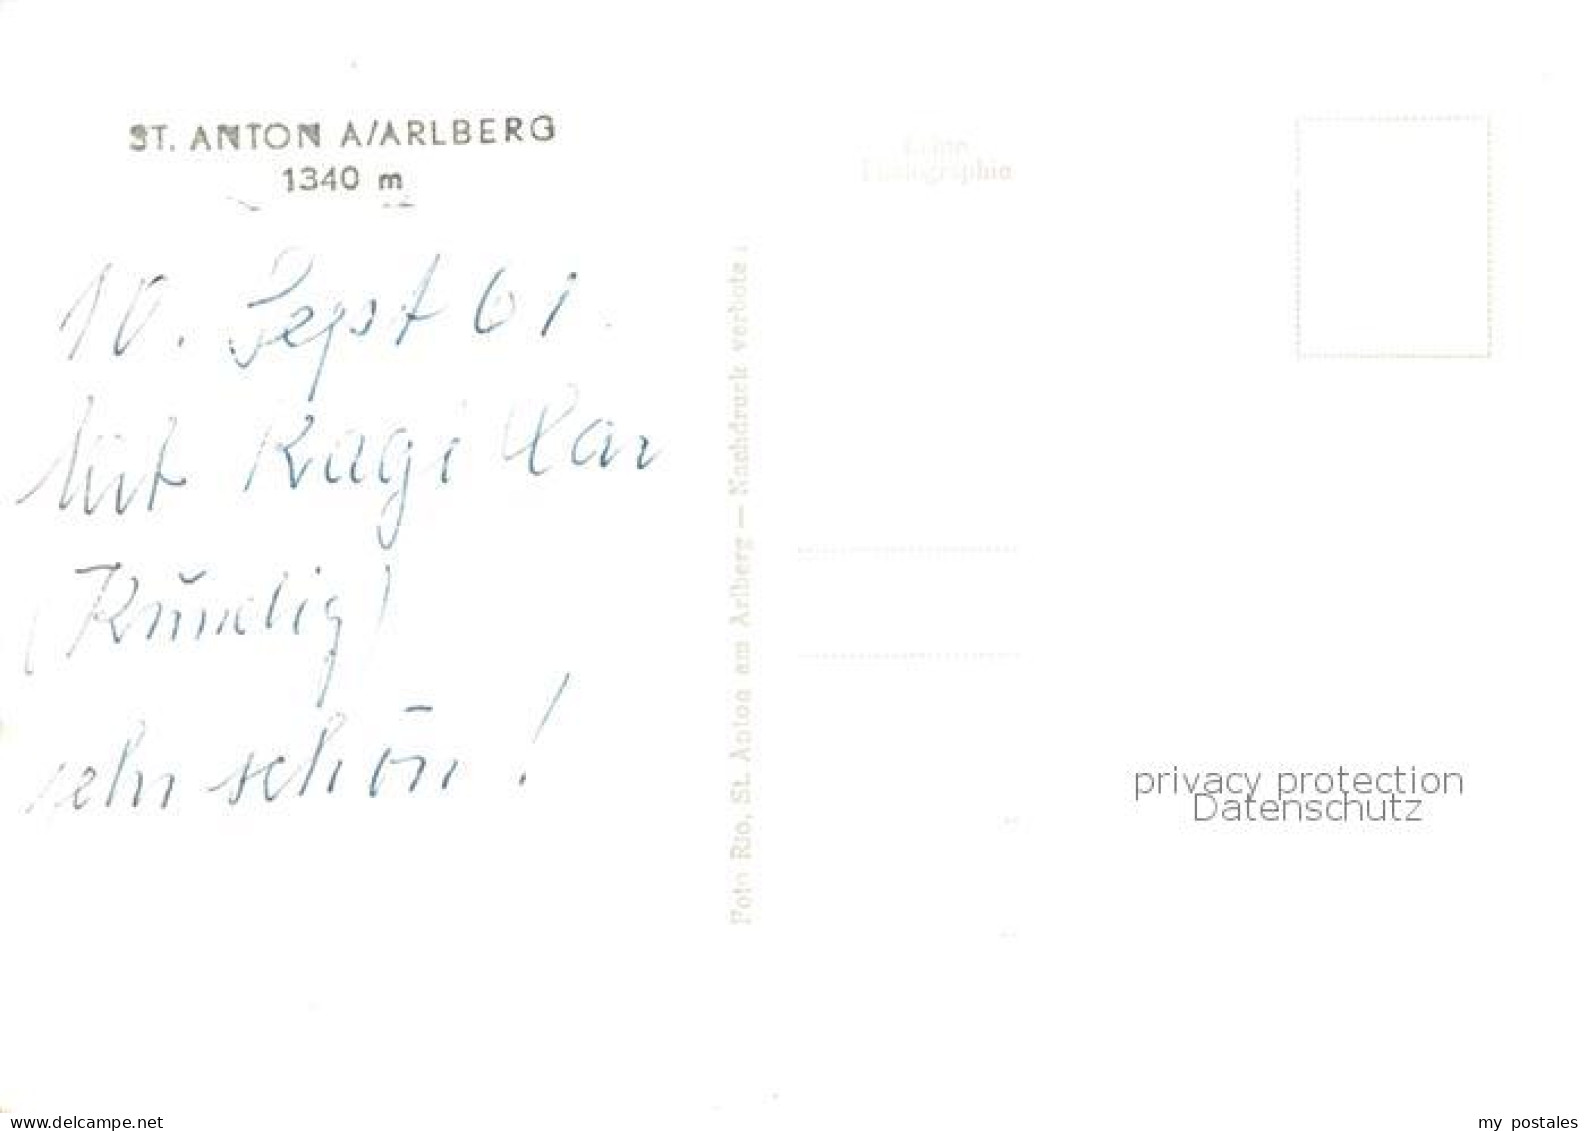 ST. ANTON A/ARLBERG
1340 m
10. Sept 61.
Mit Kägi
(Kündig)
sehr schön!
Foto Rio, St. Anton am Arlberg — Nachdruck verbote
Echte
Photographie
privacy protection
Datenschutz
www.delcampe.net
my_postales